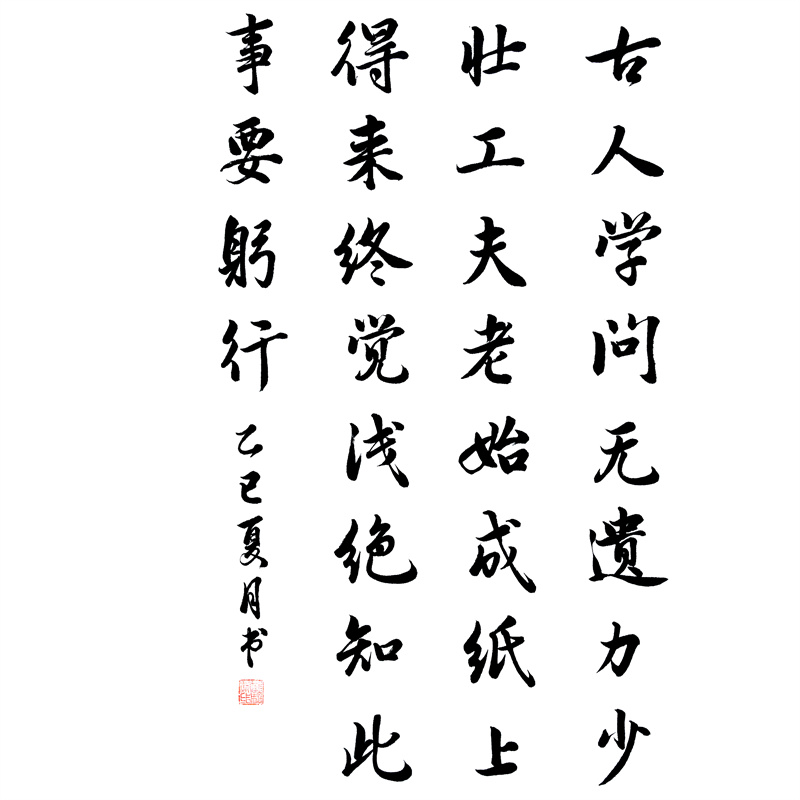 古人学问无遗力少
壮工夫老始成纸上
得来终觉浅绝知此
事要躬行
乙巳夏月书